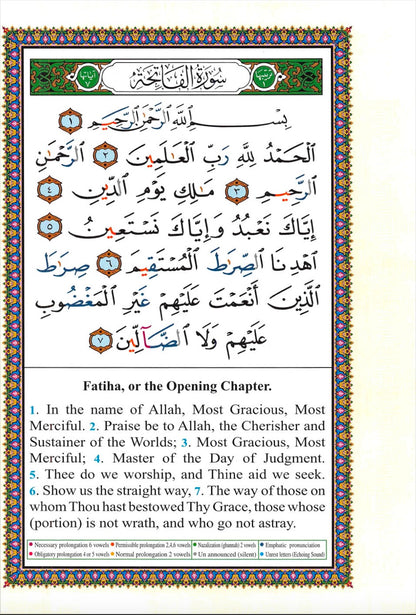 ترتيبها ١ سورة الفاتحة آياتها ٧
بِسْمِ ٱللَّهِ ٱلرَّحْمَٰنِ ٱلرَّحِيمِ ١
ٱلْحَمْدُ لِلَّهِ رَبِّ ٱلْعَٰلَمِينَ ٢ ٱلرَّحْمَٰنِ
ٱلرَّحِيمِ ٣ مَٰلِكِ يَوْمِ ٱلدِّينِ ٤
إِيَّاكَ نَعْبُدُ وَإِيَّاكَ نَسْتَعِينُ ٥
ٱهْدِنَا ٱلصِّرَٰطَ ٱلْمُسْتَقِيمَ ٦ صِرَٰطَ
ٱلَّذِينَ أَنْعَمْتَ عَلَيْهِمْ غَيْرِ ٱلْمَغْضُوبِ
عَلَيْهِمْ وَلَا ٱلضَّآلِّينَ ٧
Fatiha, or the Opening Chapter.
1. In the name of Allah, Most Gracious, Most
Merciful. 2. Praise be to Allah, the Cherisher and
Sustainer of the Worlds; 3. Most Gracious, Most
Merciful; 4. Master of the Day of Judgment.
5. Thee do we worship, and Thine aid we seek.
6. Show us the straight way, 7. The way of those on
whom Thou hast bestowed Thy Grace, those whose
(portion) is not wrath, and who go not astray.
Necessary prolongation 6 vowels Permissible prolongation 2,4,6 vowels Nazalization (ghunnah) 2 vowels Emphatic pronunciation
Obligatory prolongation 4 or 5 vowels Normal prolongation 2 vowels Un announced (silent) Unrest letters (Echoing Sound)